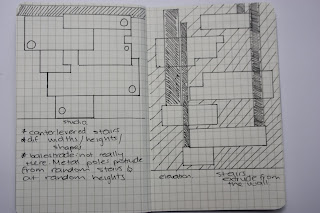 studio
* cantelevered stairs
* dif widths/heights/
shapes
* balestrade not really
there. Metal poles protude
from random stairs &
at random heights
elevation. stairs
extrude from
the wall